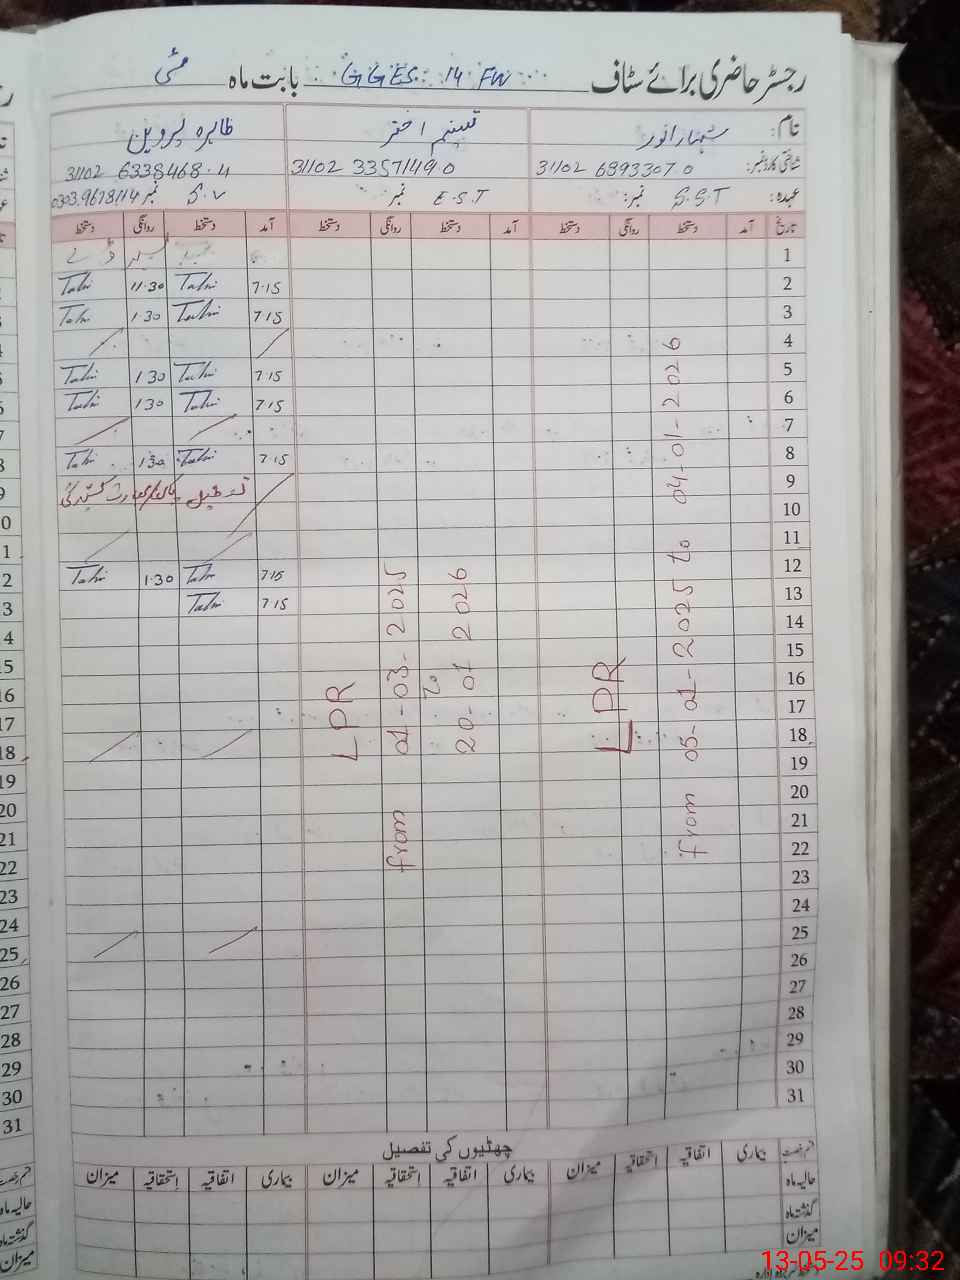 رجسٹر حاضری برائے سٹاف GGES. 14 FW بابت ماہ مئی
نام: شہناز انور تسنیم اختر طاہرہ پروین
شناختی کارڈ نمبر: 31102 6993307 0 31102 3357149 0 31102 6338468.4
عہدہ: S.S.T نمبر: E.S.T نمبر S.V نمبر 0303.9678114
تاریخ آمد دستخط روانگی دستخط آمد دستخط روانگی دستخط آمد دستخط روانگی دستخط
1
2 7.15 Tahi 11.30 Tahi
3 7.15 Tahi 1.30 Tahi
4
5 7.15 Tahi 1.30 Tahi
6 7.15 Tahi 1.30 Tahi
7
8 7.15 Tahi 1.30 Tahi
9 تعطیل
10
11
12 7.15 Tahi 1.30 Tahi
13 7.15 Tahi
14
15
16
17
18
19
20
21
22
23
24
25
26
27
28
29
30
31
LPR
from 05-01-2025 to 04-01-2026
LPR
from 01-03-2025
to
20-01 2026
چھٹیوں کی تفصیل
بیماری اتفاقیہ استحقاقیہ میزان بیماری اتفاقیہ استحقاقیہ میزان بیماری اتفاقیہ استحقاقیہ میزان
حالیہ ماہ
گذشتہ ماہ
میزان
13-05-25 09:32